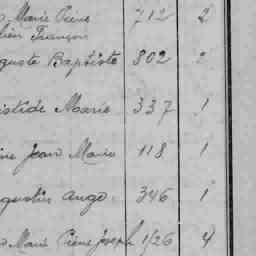 Marie Pierre 712 2
François
guste Baptiste 802
istide Marie 337 1
ine Jean Marie 118 1
gustin Ange 346 1
Marie Pierre Joseph 1126 4